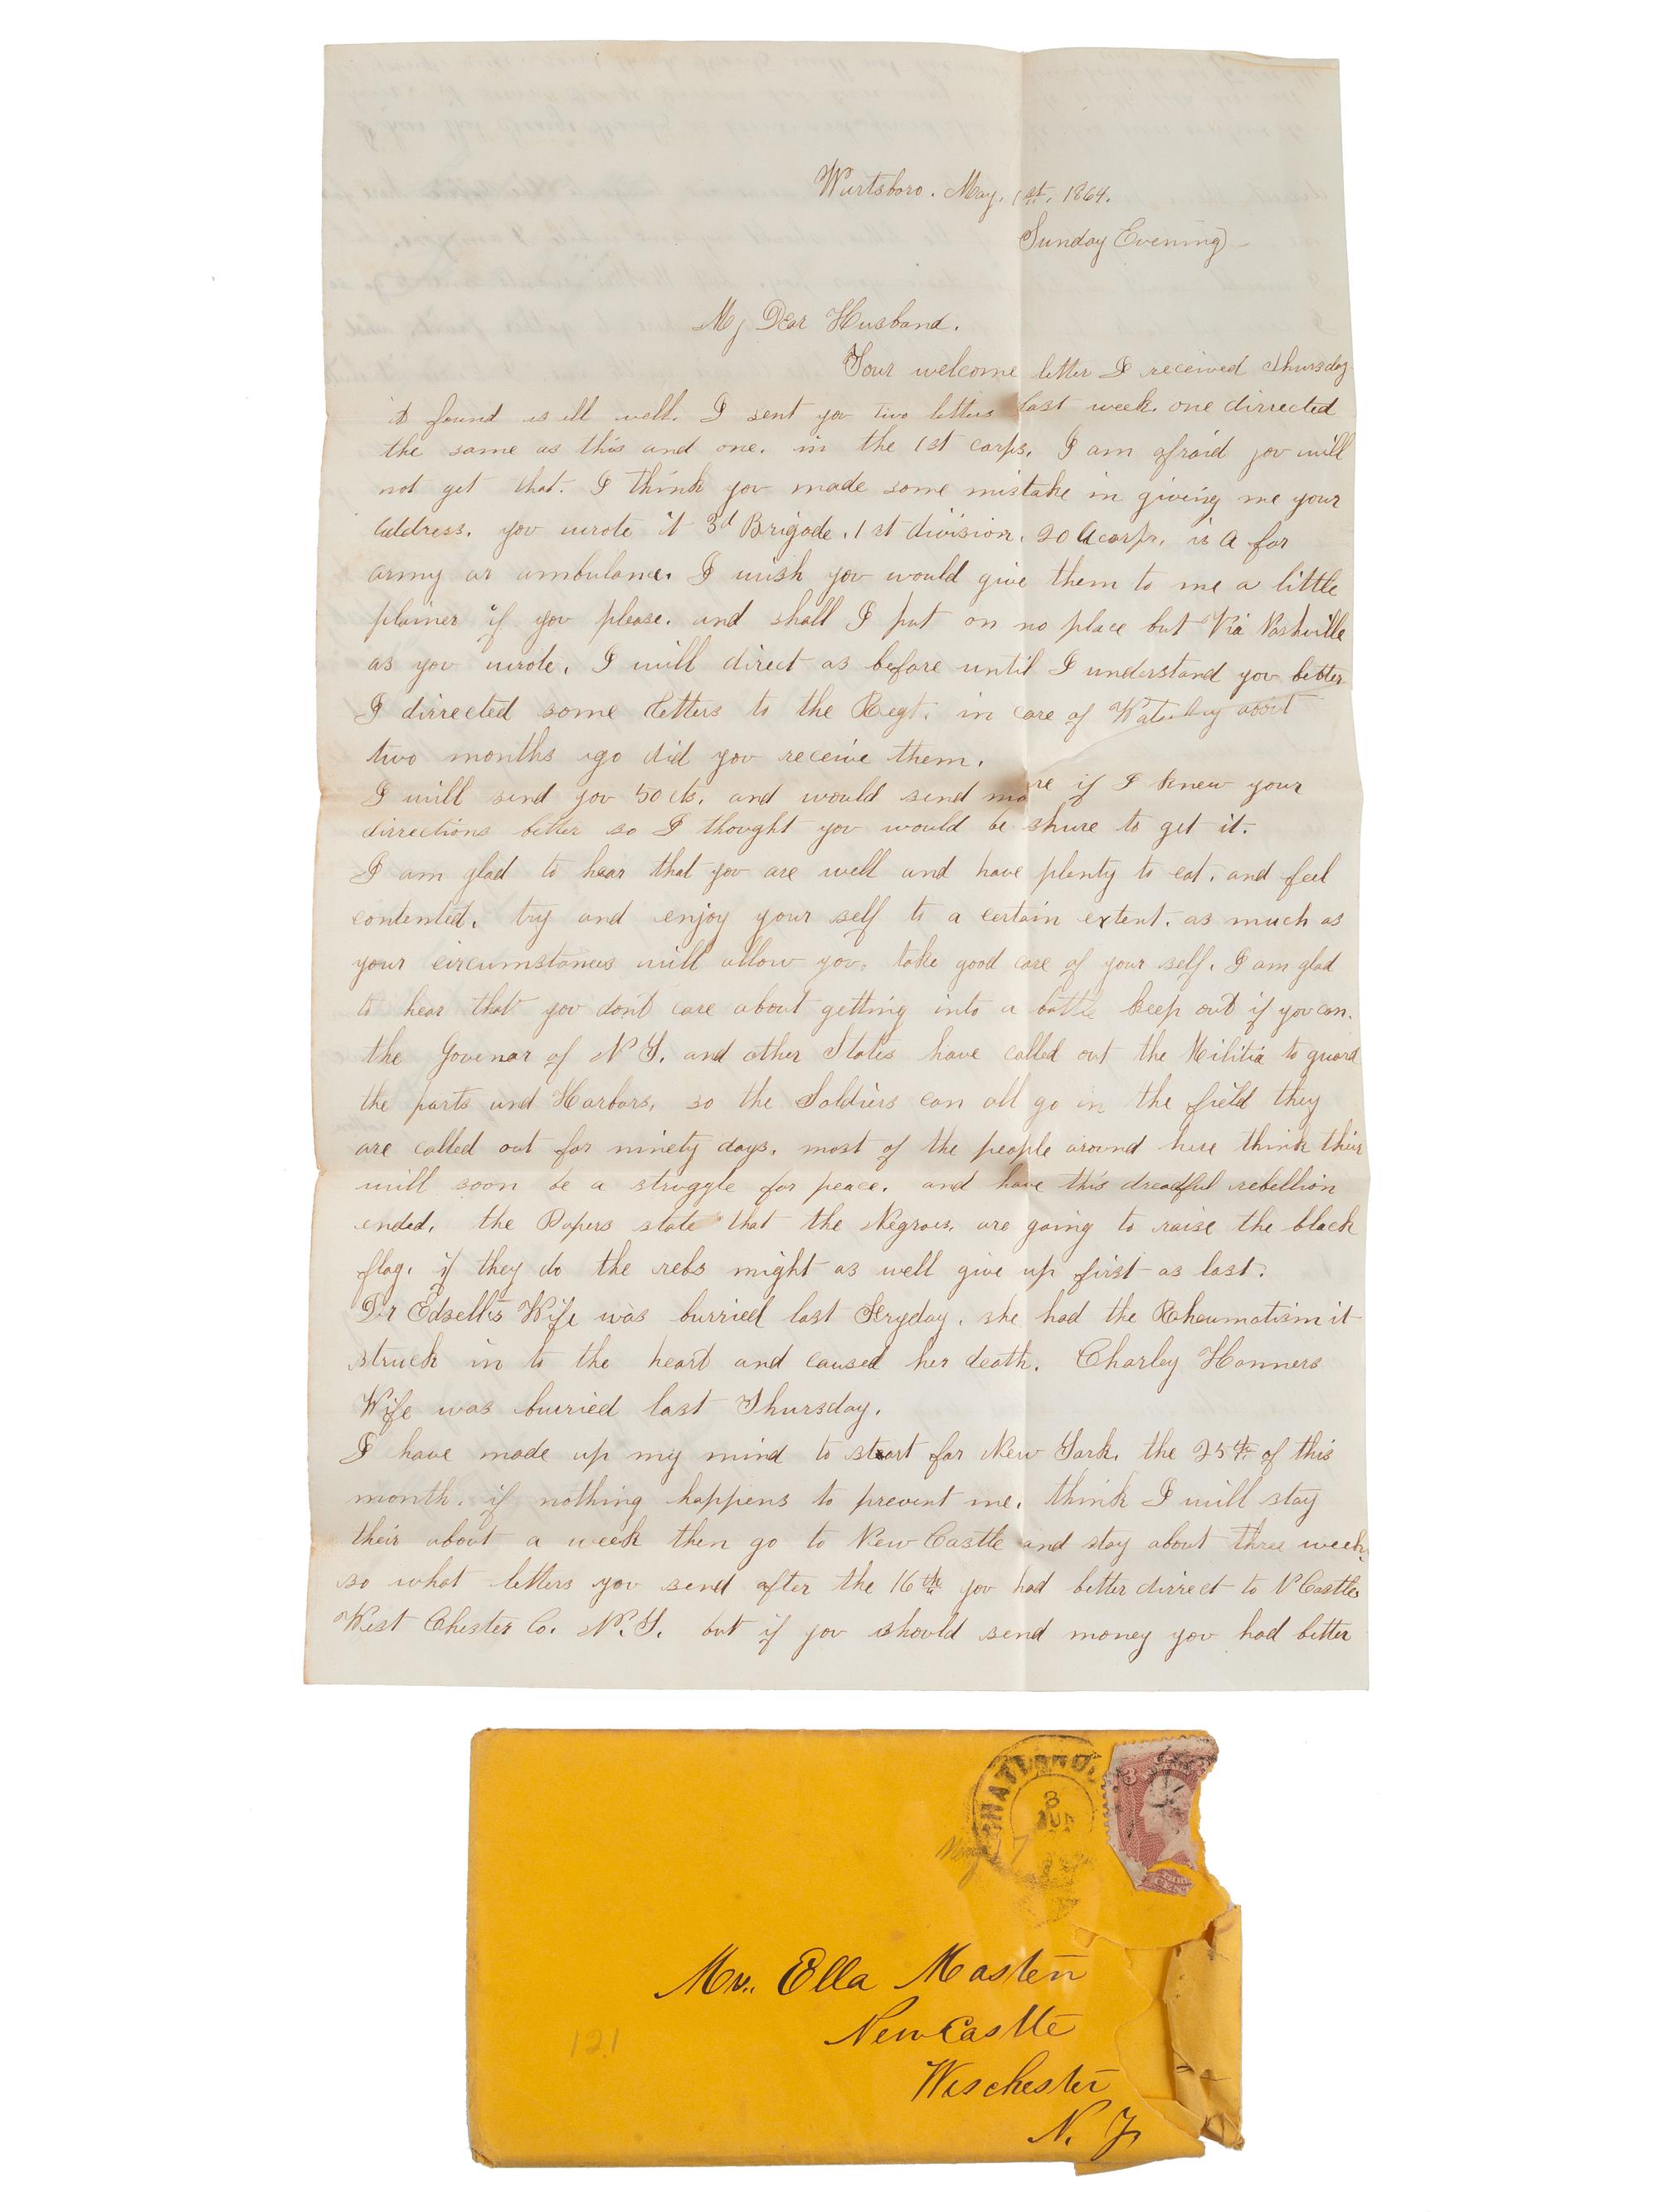 Wurtsboro. May. 1st. 1864.
Sunday Evening
My Dear Husband.
Your welcome letter I received Thursday
it found us all well. I sent you two letters last week. one dirrected
the same as this and one. in the 1st corps. I am afraid you will
not get that. I think you made some mistake in giving me your
address. you wrote it 3d Brigade. 1st division. 20 A corps. is A for
army or ambulance. I wish you would give them to me a little
plainer if you please. and shall I put on no place but Via Nashville
as you wrote. I will direct as before until I understand you better
I dirrected some letters to the Regt. in care of about
two months ago did you receive them.
I will send you 50 cts. and would send more if I knew your
dirrections better so I thought you would be shure to get it.
I am glad to hear that you are well and have plenty to eat. and feel
contented. try and enjoy your self to a certain extent. as much as
your circumstances will allow you. take good care of your self. I am glad
to hear that you dont care about getting into a battle keep out if you can.
the Govenor of N Y. and other States have called out the Militia to guard
the ports and Harbors. so the Soldiers can all go in the field they
are called out for ninety days. most of the people around here think their
will soon be a struggle for peace. and have this dreadful rebellion
ended. the Papers state that the Negroes. are going to raise the black
flag. if they do the rebs might as well give up first as last.
Dr Edsell's Wife was burried last Fryday. she had the Rheumatism it
struck in to the heart and caused her death. Charley Honners
Wife was burried last Thursday.
I have made up my mind to start for New York. the 25th of this
month. if nothing happens to prevent me. think I will stay
their about a week then go to New Castle and stay about three week.
so what letters you send after the 16th you had better dirrect to N Castle
West Chester Co. N. Y. but if you should send money you had better
3
3
Mrs. Ella Masten
New Castle
Weschester
N. Y.
121